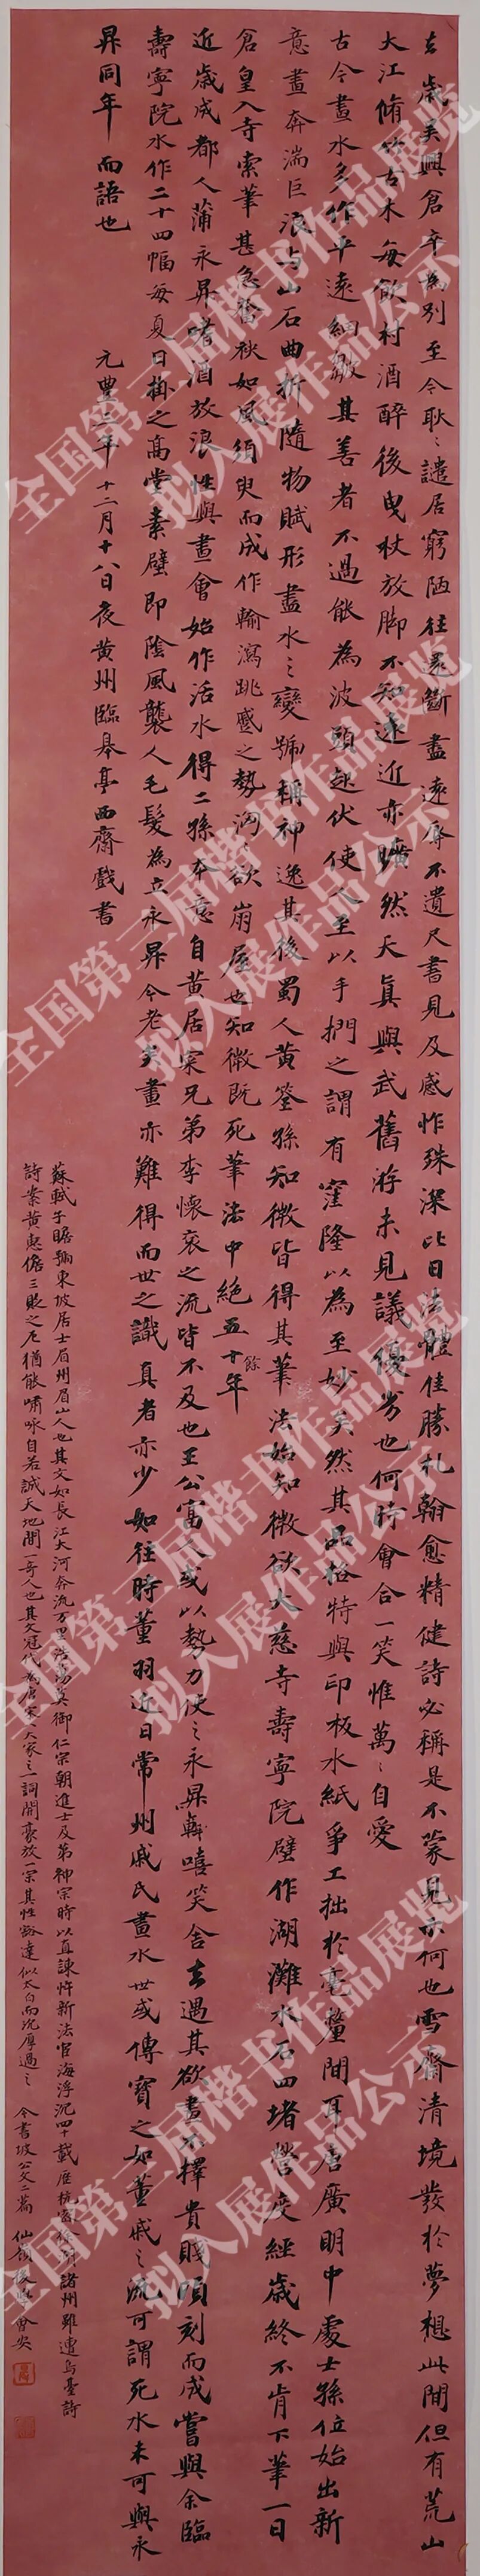 去歲吳興倉卒為別至今耿〻譴居窮陋往還斷盡遠辱不遺尺書見及感怍殊深比日法體佳勝札翰愈精健詩必稱是不蒙見示何也雪齋清境發於夢想此間但有荒山
大江脩竹古木每飲村酒醉後曳杖放脚不知遠近亦曠然天真與武舊游未見議優劣也何時會合一笑惟萬〻自愛
古今畫水多作平遠細皺其善者不過能為波頭起伏使人至以手捫之謂有窪隆以為至妙矣然其品格特與印板水紙爭工拙於毫釐間耳唐廣明中處士孫位始出新
意畫奔湍巨浪與山石曲折隨物賦形盡水之變號稱神逸其後蜀人黃筌孫知微皆得其筆法始知微欲大慈寺壽寧院壁作湖灘水石四堵營度經歲終不肯下筆一日
倉皇入寺索筆甚急奮袂如風須臾而成作輸瀉跳蹙之勢洶〻欲崩屋也知微既死筆法中絕五十餘年
近歲成都人蒲永昇嗜酒放浪性與畫會始作活水得二孫本意自黃居寀兄弟李懷袞之流皆不及也王公富人或以勢力使之永昇輒嘻笑舍去遇其欲畫不擇貴賤頃刻而成嘗與余臨
壽寧院水作二十四幅每夏日掛之高堂素壁即陰風襲人毛髮為立永昇今老矣畫亦難得而世之識真者亦少如往時董羽近日常州戚氏畫水世或傳寶之如董戚之流可謂死水未可與永
昇同年而語也 元豐三年十二月十八日夜黃州臨皋亭西齋戲書
蘇軾字子瞻號東坡居士眉州眉山人也其文如長江大河奔流万里浩蕩莫御仁宗朝進士及第神宗時以直諫忤新法宦海浮沉四十載歷杭密徐湖諸州雖遭烏臺詩
詩案黃惠儋三貶之厄猶能嘯咏自若誠天地間一奇人也其文冠代為唐宋八大家之一詞開豪放一宗其性豁達似太白而沉厚過之 今書坡公文二篇 仙領後學曾安
全国第三届楷书作品展览
拟入展作品公示
全国第三届楷书作品展览
拟入展作品公示
全国第三届楷书作品展览
拟入展作品公示
全国第三届楷书作品展览
拟入展作品公示